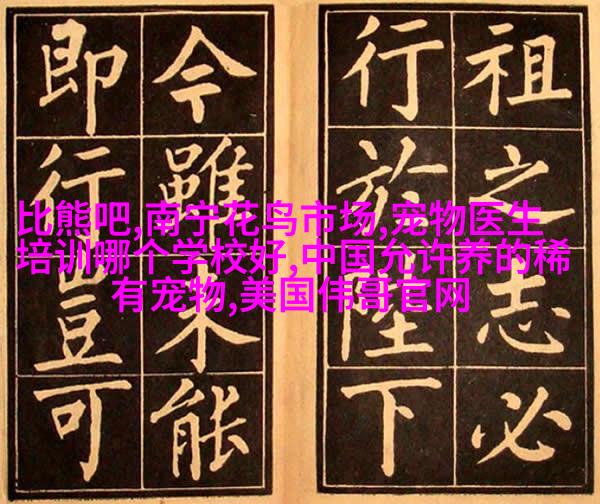 祖之志必
行於陛下
今雖未能
即行豈可
比熊吧,南宁花鸟市场,宠物医生
培训哪个学校好,中国允许养的稀
有宠物,美国伟哥官网